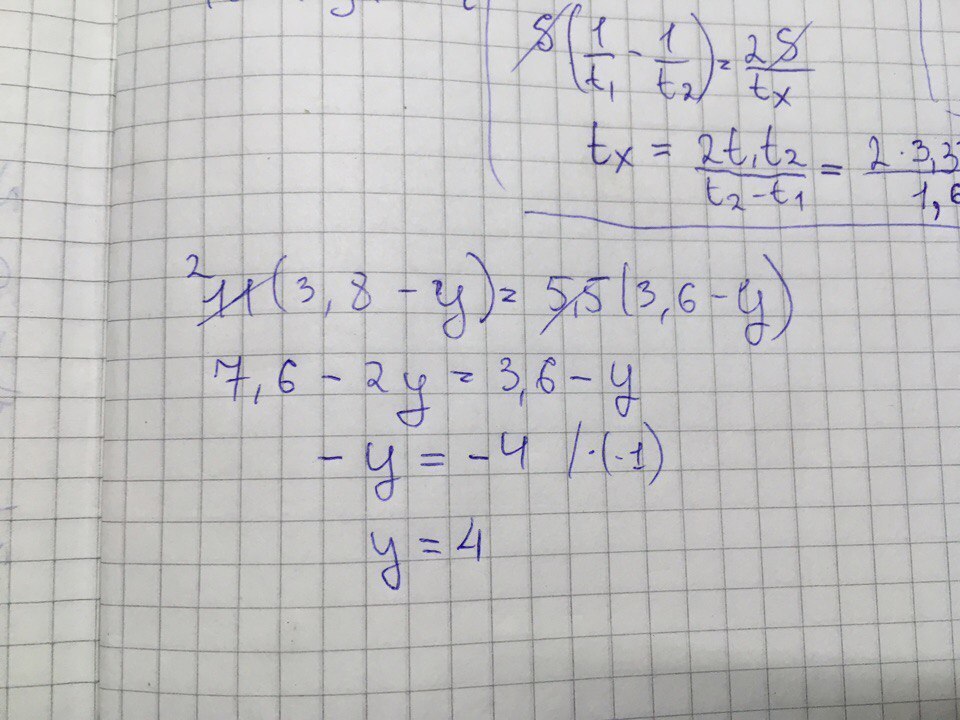 S(1/t₁ - 1/t₂) = 2S/tₓ
tₓ = 2t₁t₂/(t₂-t₁) = 2·3,3
1,6
2 11(3,8 - y) = 5,5(3,6 - y)
7,6 - 2y = 3,6 - y
- y = -4 /·(-1)
y = 4